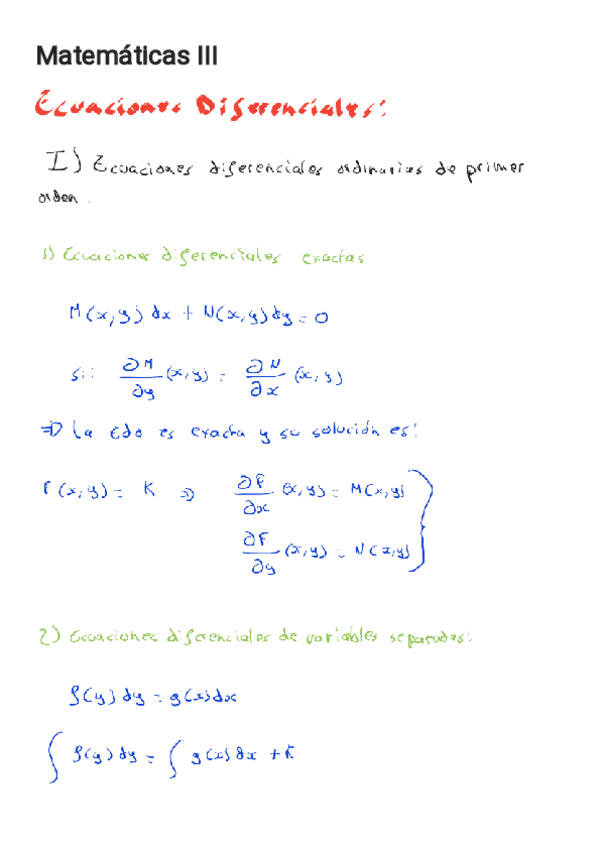 Matemáticas III
Ecuaciones Diferenciales:
I) Ecuaciones diferenciales ordinarias de primer
orden.
1) Ecuaciones diferenciales exactas
M(x,y) dx + N(x,y) dy = 0
si: ∂M/∂y (x,y) = ∂N/∂x (x,y)
⇒ La EDO es exacta y su solución es:
F(x,y) = K ⇒ ∂F/∂x (x,y) = M(x,y)
∂F/∂y (x,y) = N(x,y)
2) Ecuaciones diferenciales de variables separadas:
f(y) dy = g(x) dx
∫ f(y) dy = ∫ g(x) dx + K